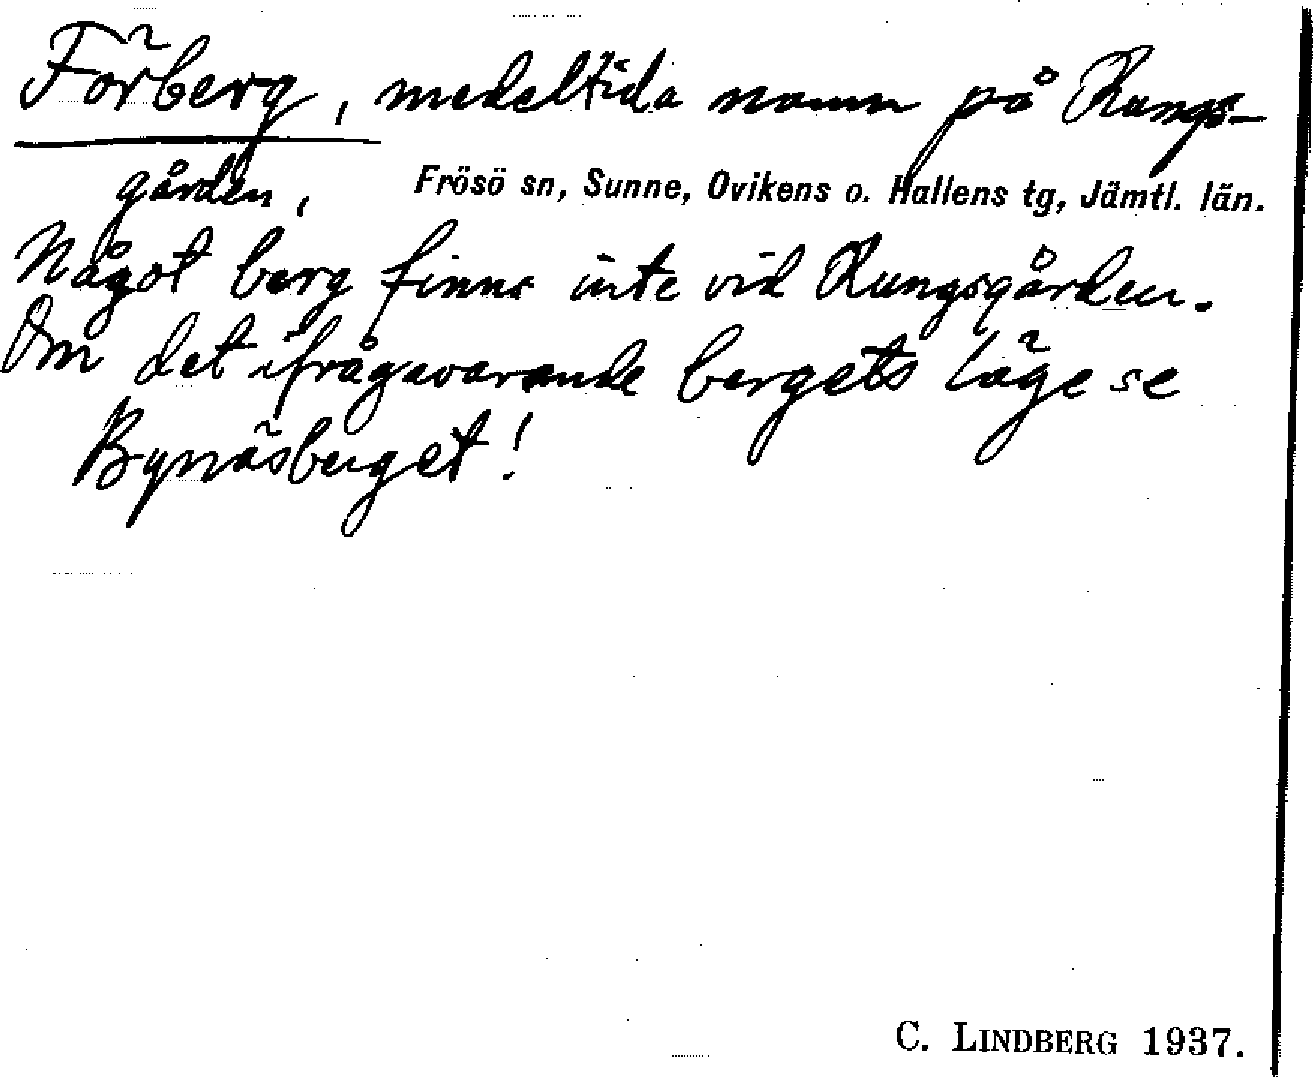 Förberg, medeltida namn på Kungs-
gården, Frösö sn, Sunne, Ovikens o. Hallens tg, Jämtl. län.
Något berg finns inte vid Kungsgården.
Om det ifrågavarande bergets läge se
Bynäsberget!
C. LINDBERG 1937.